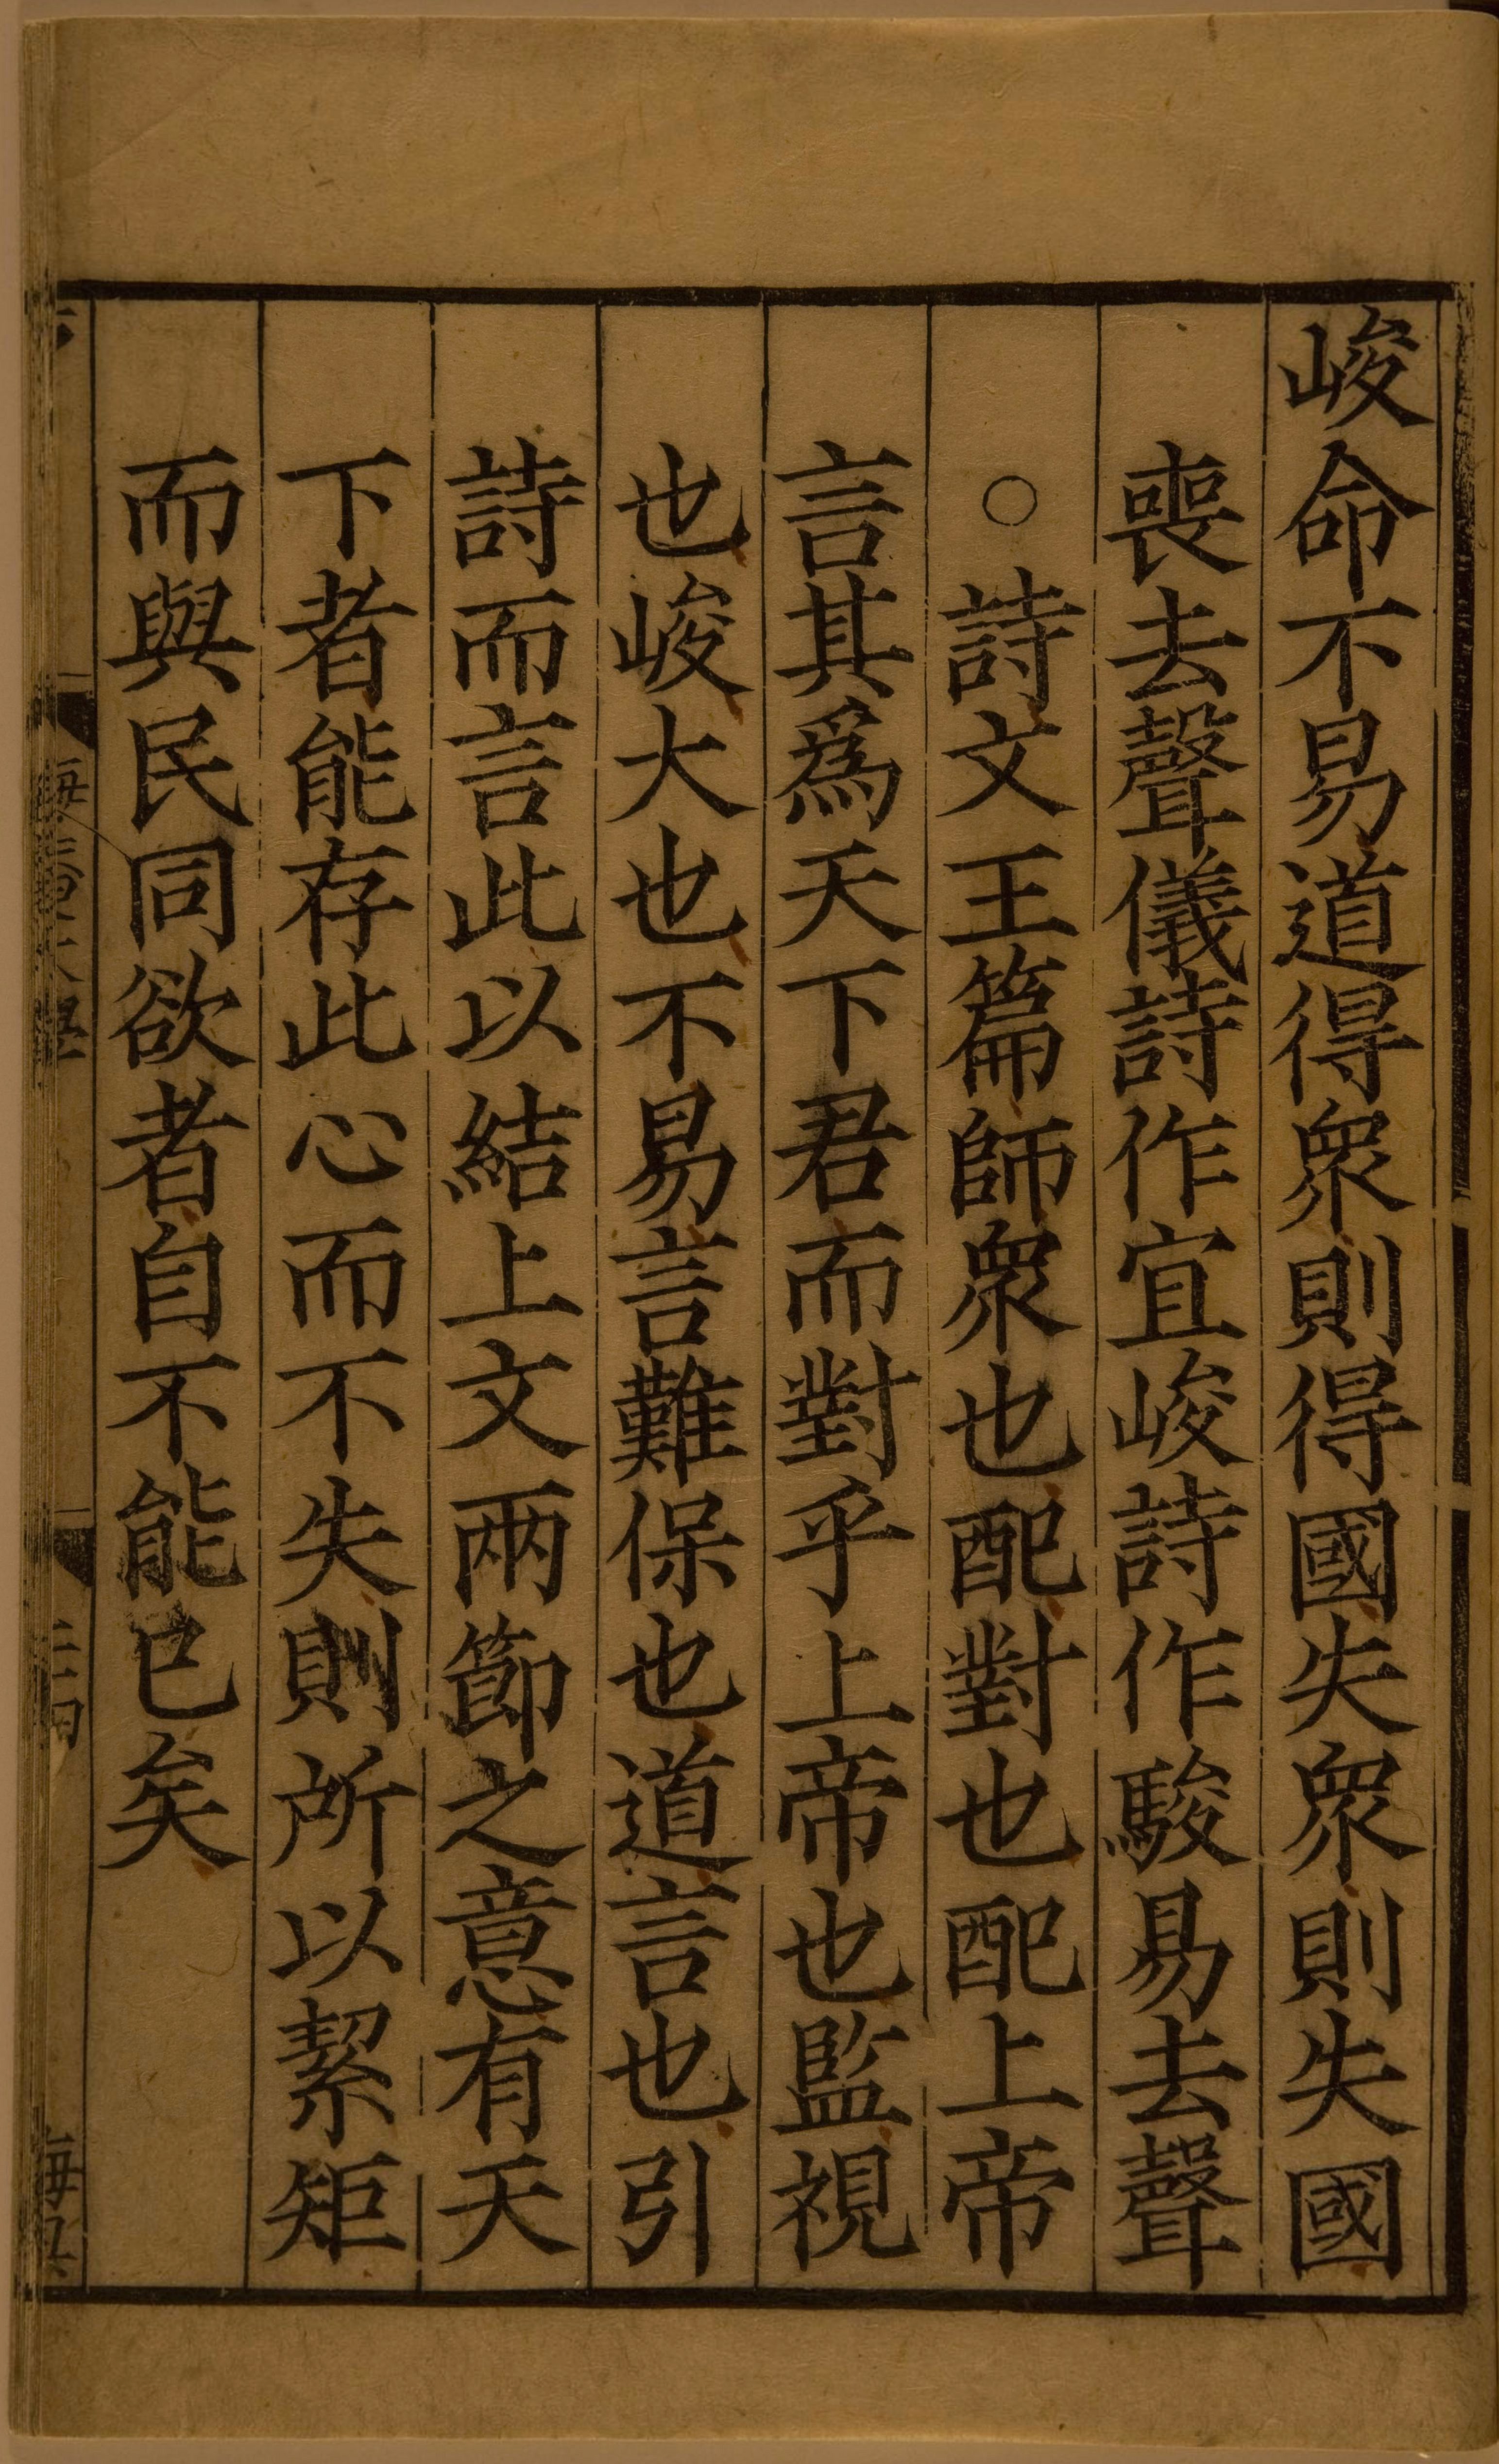 峻命不易道得衆則得國失衆則失國
喪去聲儀詩作宜峻詩作駿易去聲
○詩文王篇師衆也配對也配上帝
言其爲天下君而對乎上帝也監視
也峻大也不易言難保也道言也引
詩而言此以結上文兩節之意有天
下者能存此心而不失則所以絜矩
而與民同欲者自不能已矣